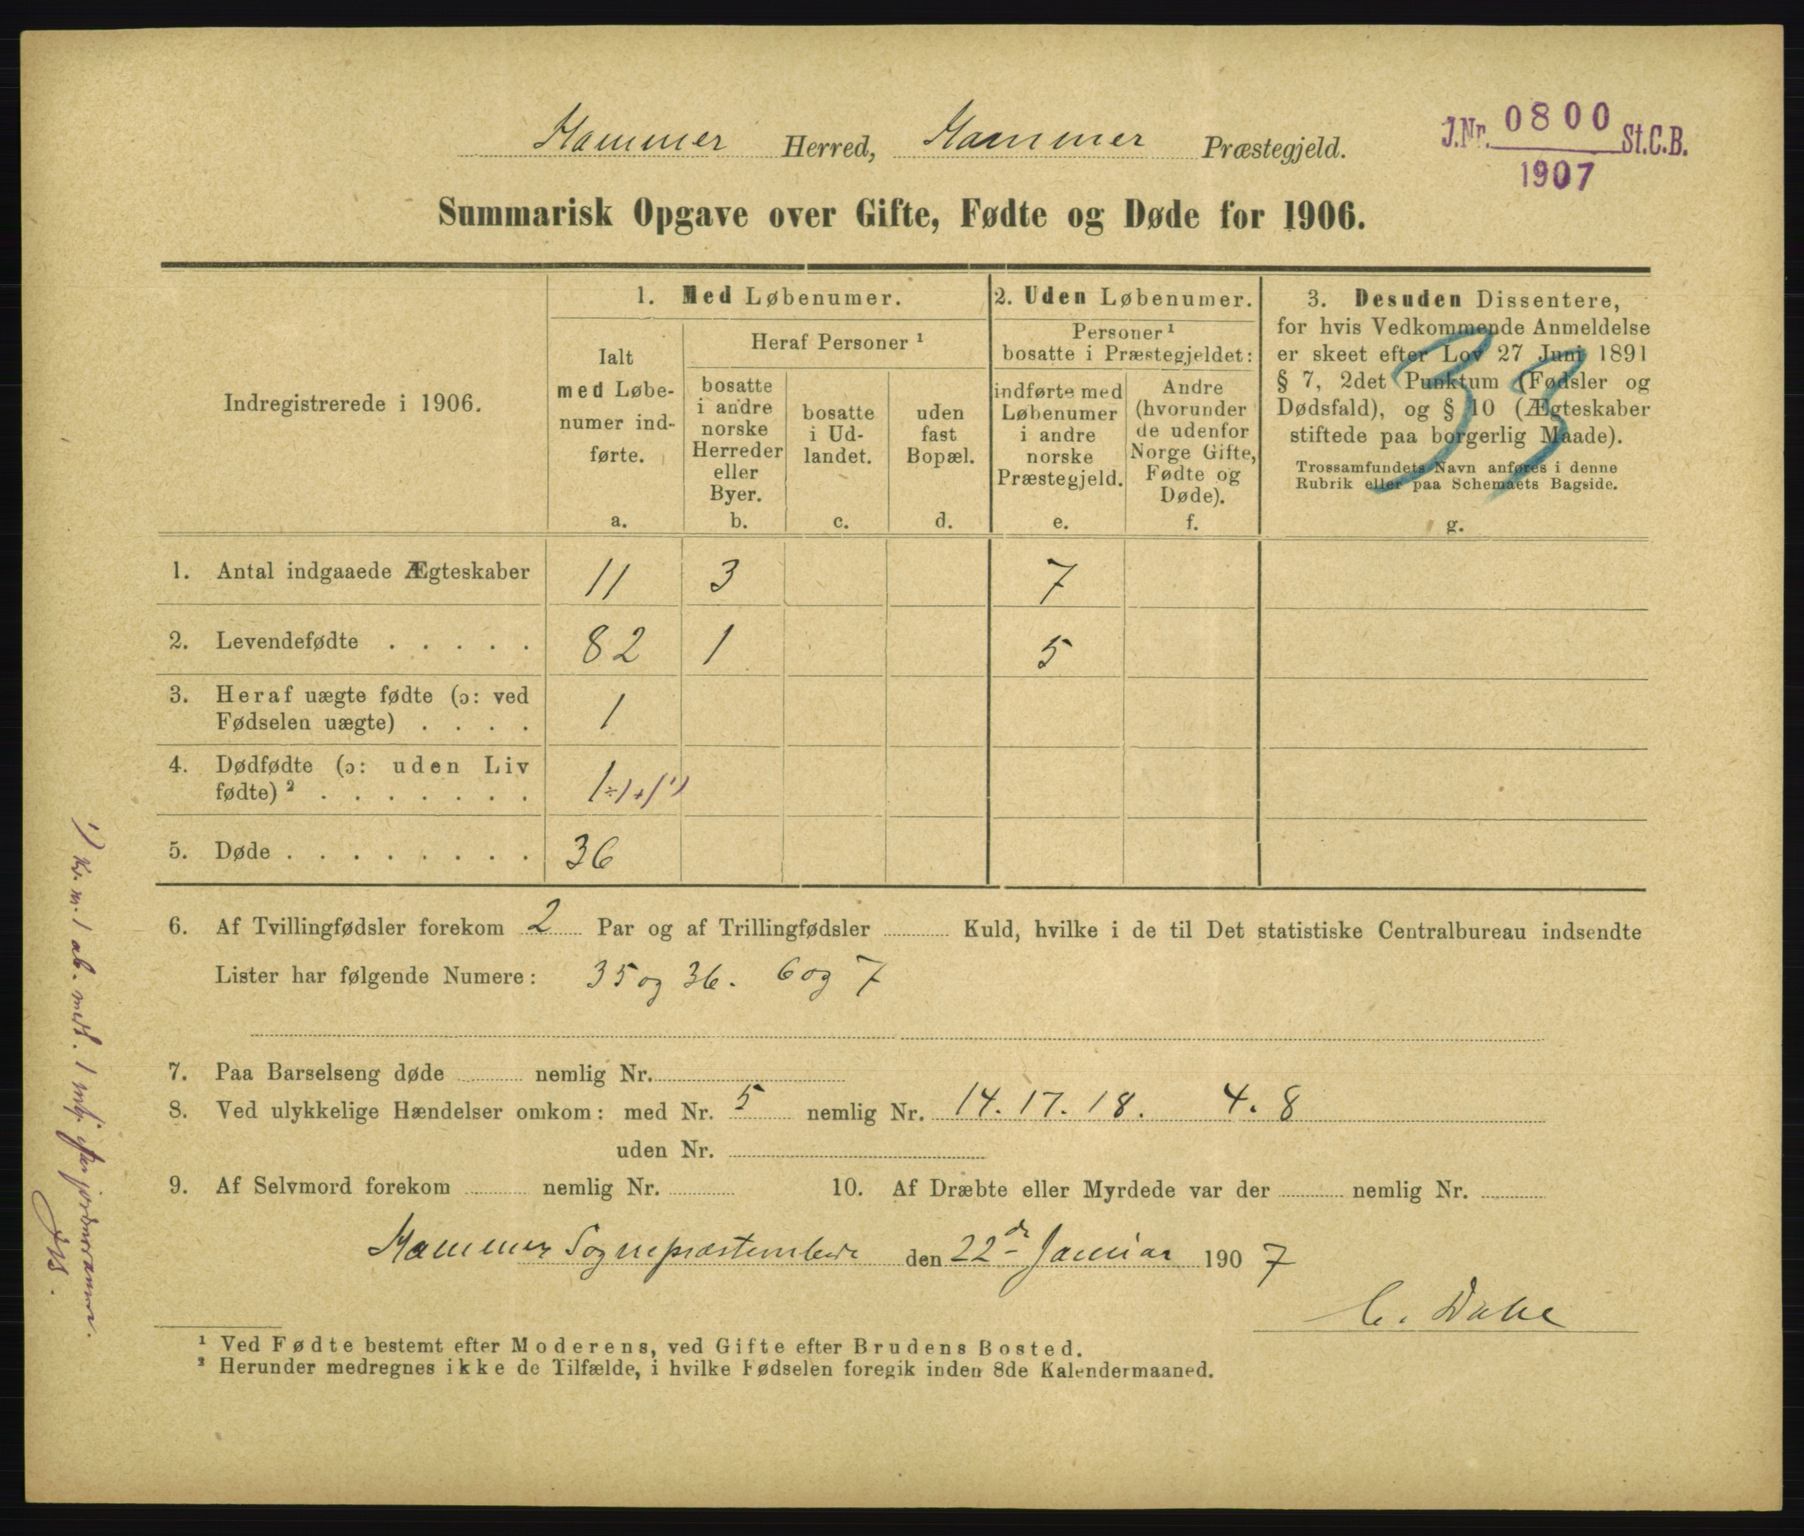 Hammer Herred, Hammer Præstegjeld.
J.Nr. 0800 St.C.B.
1907
Summarisk Opgave over Gifte, Fødte og Døde for 1906.
33
Indregistrerede i 1906.
1. Med Løbenumer.
Ialt
med Løbe-
numer ind-
førte.
a.
Heraf Personer ¹
bosatte
i andre
norske
Herreder
eller
Byer.
b.
bosatte
i Ud-
landet.
c.
uden
fast
Bopæl.
d.
2. Uden Løbenumer.
Personer ¹
bosatte i Præstegjeldet:
indførte med
Løbenumer
i andre
norske
Præstegjeld.
e.
Andre
(hvorunder
de udenfor
Norge Gifte,
Fødte og
Døde).
f.
3. Desuden Dissentere,
for hvis Vedkommende Anmeldelse
er skeet efter Lov 27 Juni 1891
§ 7, 2det Punktum (Fødsler og
Dødsfald), og § 10 (Ægteskaber
stiftede paa borgerlig Maade).
Trossamfundets Navn anføres i denne
Rubrik eller paa Schemaets Bagside.
g.
1. Antal indgaaede Ægteskaber 11 3 7
2. Levendefødte . . . . . 82 1 5
3. Heraf uægte fødte (ɔ: ved
Fødselen uægte) . . . . 1
4. Dødfødte (ɔ: uden Liv
fødte) ² . . . . . . . 1÷1+1¹)
5. Døde . . . . . . . . 36
6. Af Tvillingfødsler forekom 2 Par og af Trillingfødsler ........ Kuld, hvilke i de til Det statistiske Centralbureau indsendte
Lister har følgende Numere: 35 og 36. 6 og 7
7. Paa Barselseng døde ........ nemlig Nr. ........
8. Ved ulykkelige Hændelser omkom: med Nr. 5 nemlig Nr. 14. 17. 18. 4. 8
uden Nr. ........
9. Af Selvmord forekom ........ nemlig Nr. ........ 10. Af Dræbte eller Myrdede var der ........ nemlig Nr. ........
Hammer Sognepræstembede den 22de Januar 1907
C. Dahe
¹ Ved Fødte bestemt efter Moderens, ved Gifte efter Brudens Bosted.
² Herunder medregnes ikke de Tilfælde, i hvilke Fødselen foregik inden 8de Kalendermaaned.
¹) Kv. m. 1 ab. mdt. 1 jordmoranm.